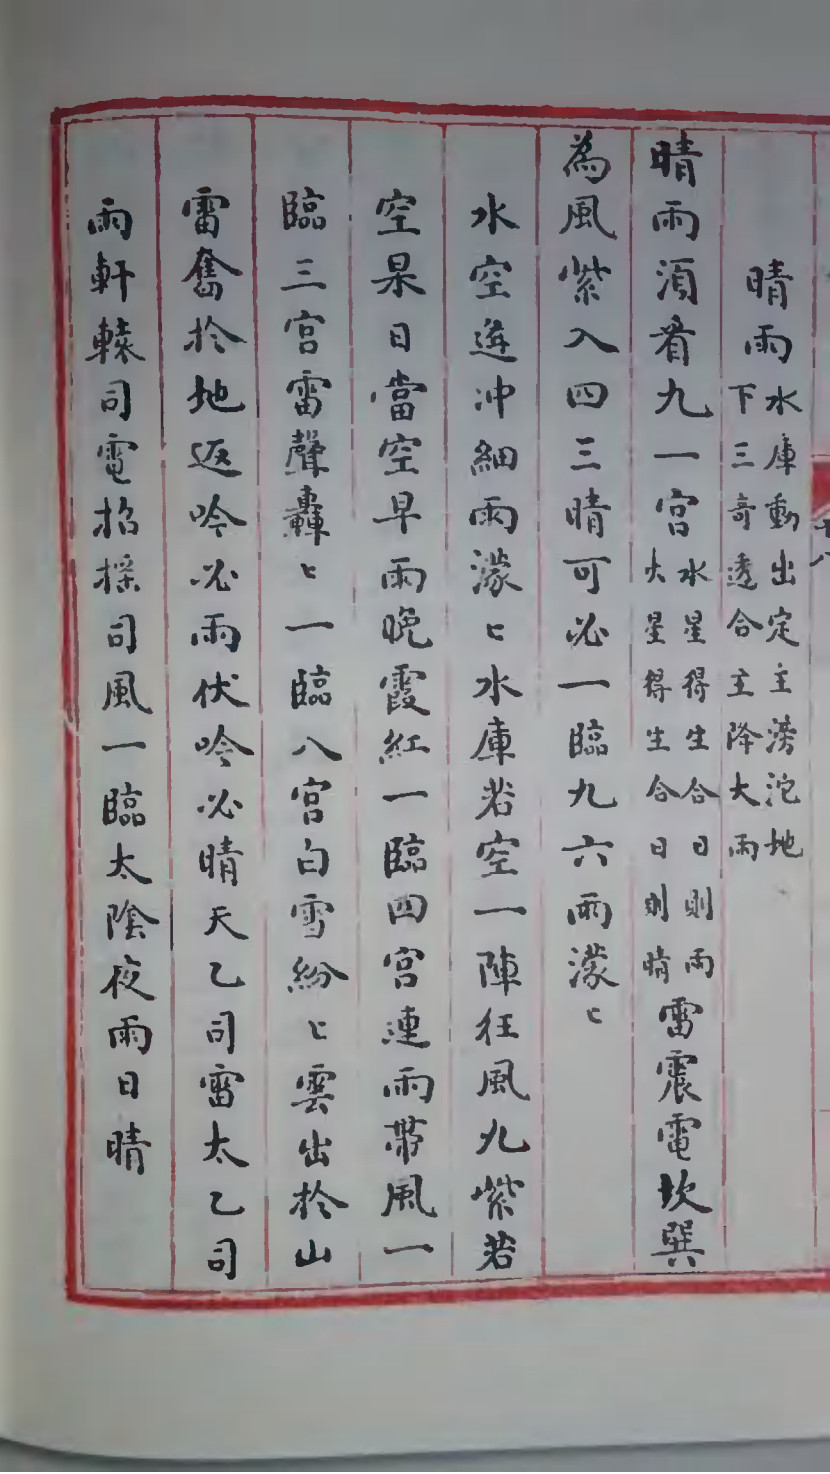 晴雨水庫動出定主滂沱地
下三奇透合主降大雨
晴雨須看九一宮水星得生合日則雨
火星得生合日則晴雷震電坎巽
為風紫入四三晴可必一臨九六雨濛〻
水空逢冲細雨濛〻水庫若空一陣狂風九紫若
空杲日當空早雨晚霞紅一臨四宮連雨帶風一
臨三宮雷聲轟〻一臨八宮白雪紛〻雲出於山
雷奮於地返吟必雨伏吟必晴天乙司雷太乙司
雨軒轅司電招搖司風一臨太陰夜雨日晴
十八